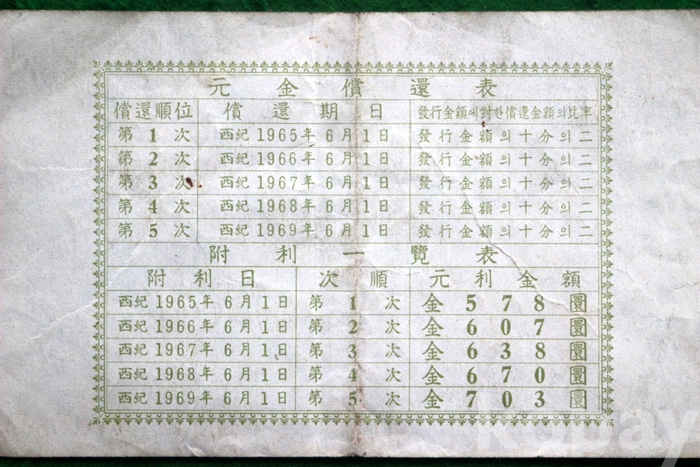 元金償還表
償還順位 償還期日 發行金額에對한償還金額의比率
第1次 西紀1965年6月1日 發行金額의十分의二
第2次 西紀1966年6月1日 發行金額의十分의二
第3次 西紀1967年6月1日 發行金額의十分의二
第4次 西紀1968年6月1日 發行金額의十分의二
第5次 西紀1969年6月1日 發行金額의十分의二
附利一覽表
附利日 次順 元利金額
西紀1965年6月1日 第1次 金578圜
西紀1966年6月1日 第2次 金607圜
西紀1967年6月1日 第3次 金638圜
西紀1968年6月1日 第4次 金670圜
西紀1969年6月1日 第5次 金703圜
Kobay